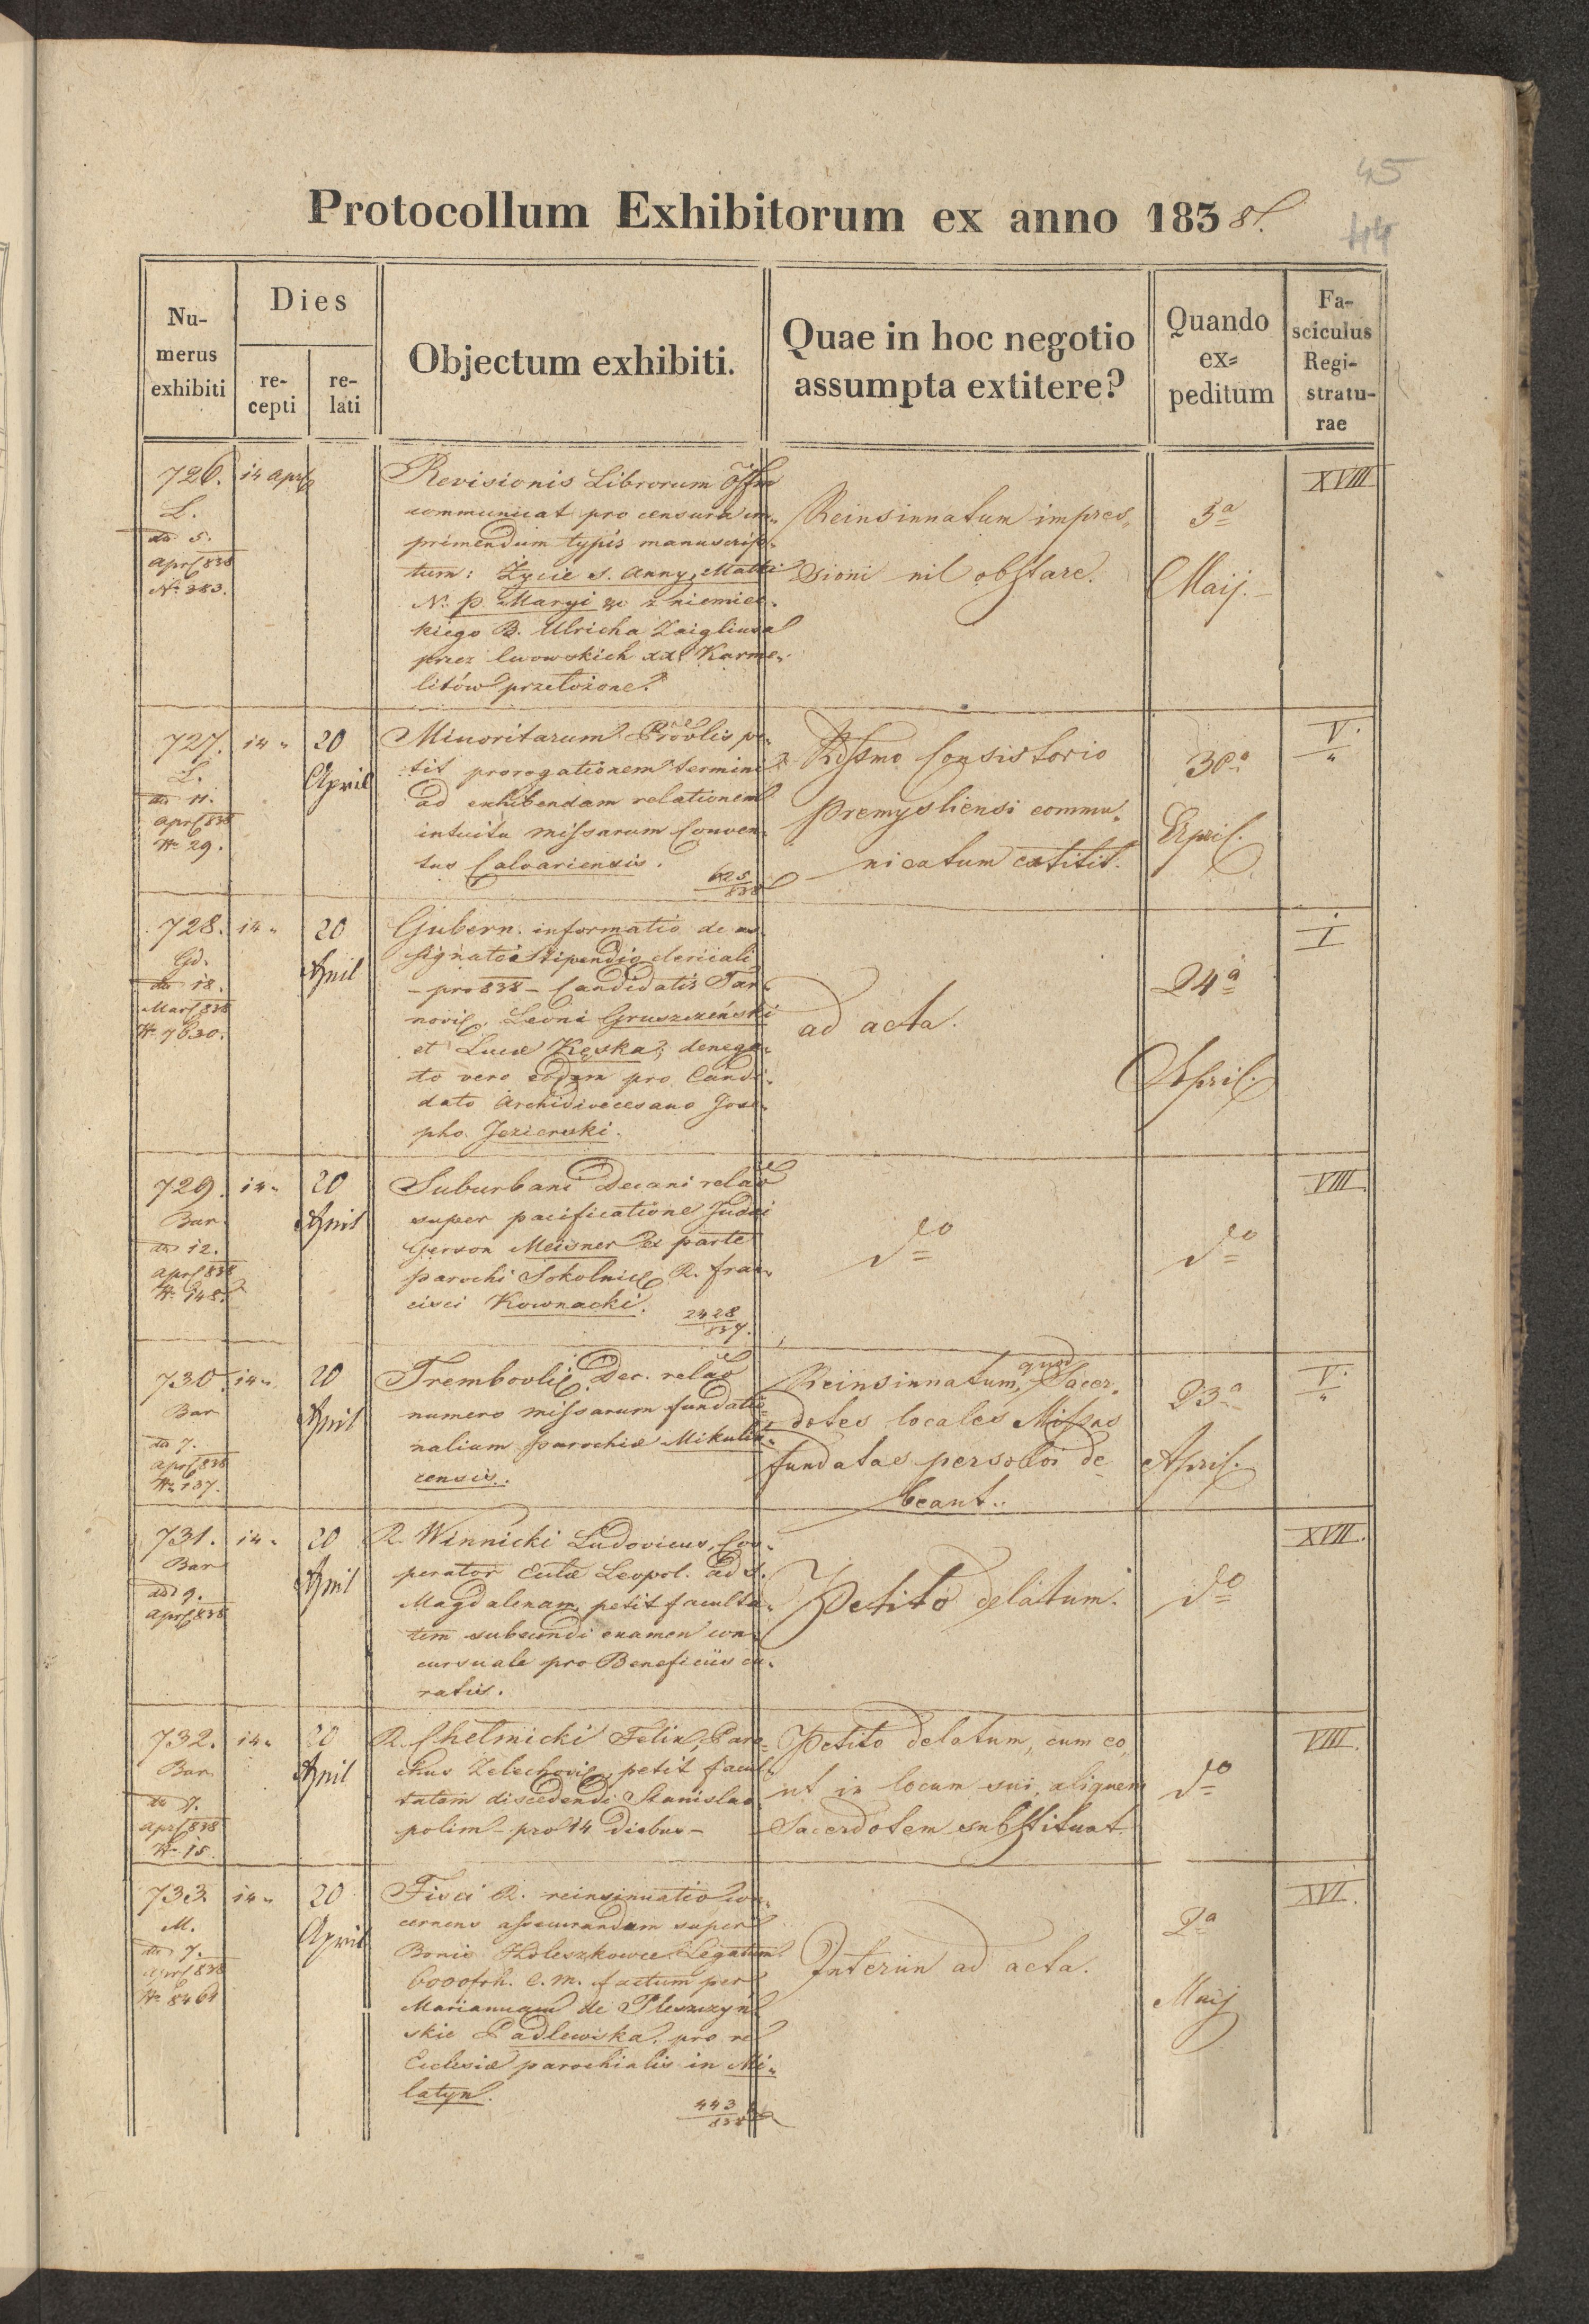 45
Protocollum Exhibitorum ex anno 1838.
44
Numerus exhibiti
Dies
recepti
relati
Objectum exhibiti.
Quae in hoc negotio assumpta extitere?
Quando expeditum
Fasciculus Registraturae
726. 14 Apr
L.
do 5.
Apr 838
N. 383.
Revisionis Librorum Offm
communicat pro censura im„
primendum typis manuscrip„
tum: Zycie s. Anny, Matki
N. P. Maryi &c z niemiec„
kiego B. Ulricha Zaigliusa
przez lwowskich xx. Karme„
litów przełożone.
Reinsinnatum impres„
sioni nil obstare.
5a
Maij.
XVIII
727. 14 „ 20
April
L.
do 11.
Apr 838
N. 29.
Minoritarum Provlis pe„
tit prorogationem termini
ad exhibendam relationem
intuitu missarum Conven„
tus Calvariensis.
625
838
Rdssmo Consistorio
Premysliensi commu„
nicatum extitit.
30a
April.
V.
„
728. 14 „ 20
April
Gd.
do 18.
Mart 838
N. 7630.
Gubern. informatio de as„
signato Stipendio clericali
– pro 838 – Candidatis Tar„
novis. Leoni Gruszczeński
et Lucæ Kęska; denega„
to vero eodem pro Candi„
dato Archidioecesano Jose„
pho Jezierski.
ad acta.
24a
April.
I
729. 14 „ 20
April
Bar
do 12.
Apr 838
N. 148.
Suburbani Decani relao
super pacificatione Judæi
Gerson Meisner ex parte
parochi Sokolnic. R. Fran„
cisci Kownacki.
2428
837.
do
do
VIII.
730. 14 „ 20
April
Bar
do 7.
Apr 838
N. 137.
Trembovlic. Dec. relao
numero missarum fundatio„
nalium parochiæ Mikulin„
censis.
Reinsinnatum, quod Sacer„
dotes locales Missas
fundatas persolvi de„
beant.
23a
April.
V.
„
731. 14 „ 20
April
Bar
do 9.
Apr 838
R. Winnicki Ludovicus, Coo„
perator Eccliæ Leopol. ad S.
Magdalenam, petit faculta„
tem subeundi examen con„
cursuale pro Beneficiis cu„
ratis.
Petito delatum.
do
XVII.
732. 14 „ 20
April
Bar
do 7.
Apr 838
N. 15.
R. Chełmicki Felix, Paro„
chus Zelechovis., petit facul„
tatem discedendi Stanislao„
polim – pro 14 diebus –
Petito delatum, cum eo,
ut in locum sui, aliquem
Sacerdotem substituat.
do
VIII.
733. 14 „ 20
April
M.
do 7.
Apr 838
N. 8461
Fisci R. reinsinuatio con„
cernens assecurandum super
Bonis Holeszkowce Legatum
6000frh. C. M. factum per
Mariannam de Pleszczyń„
skie Padlewska, pro re
Ecclesiæ parochialis in Mi„
latyn.
443
838
Interim ad acta.
2a
Maij
XVI.